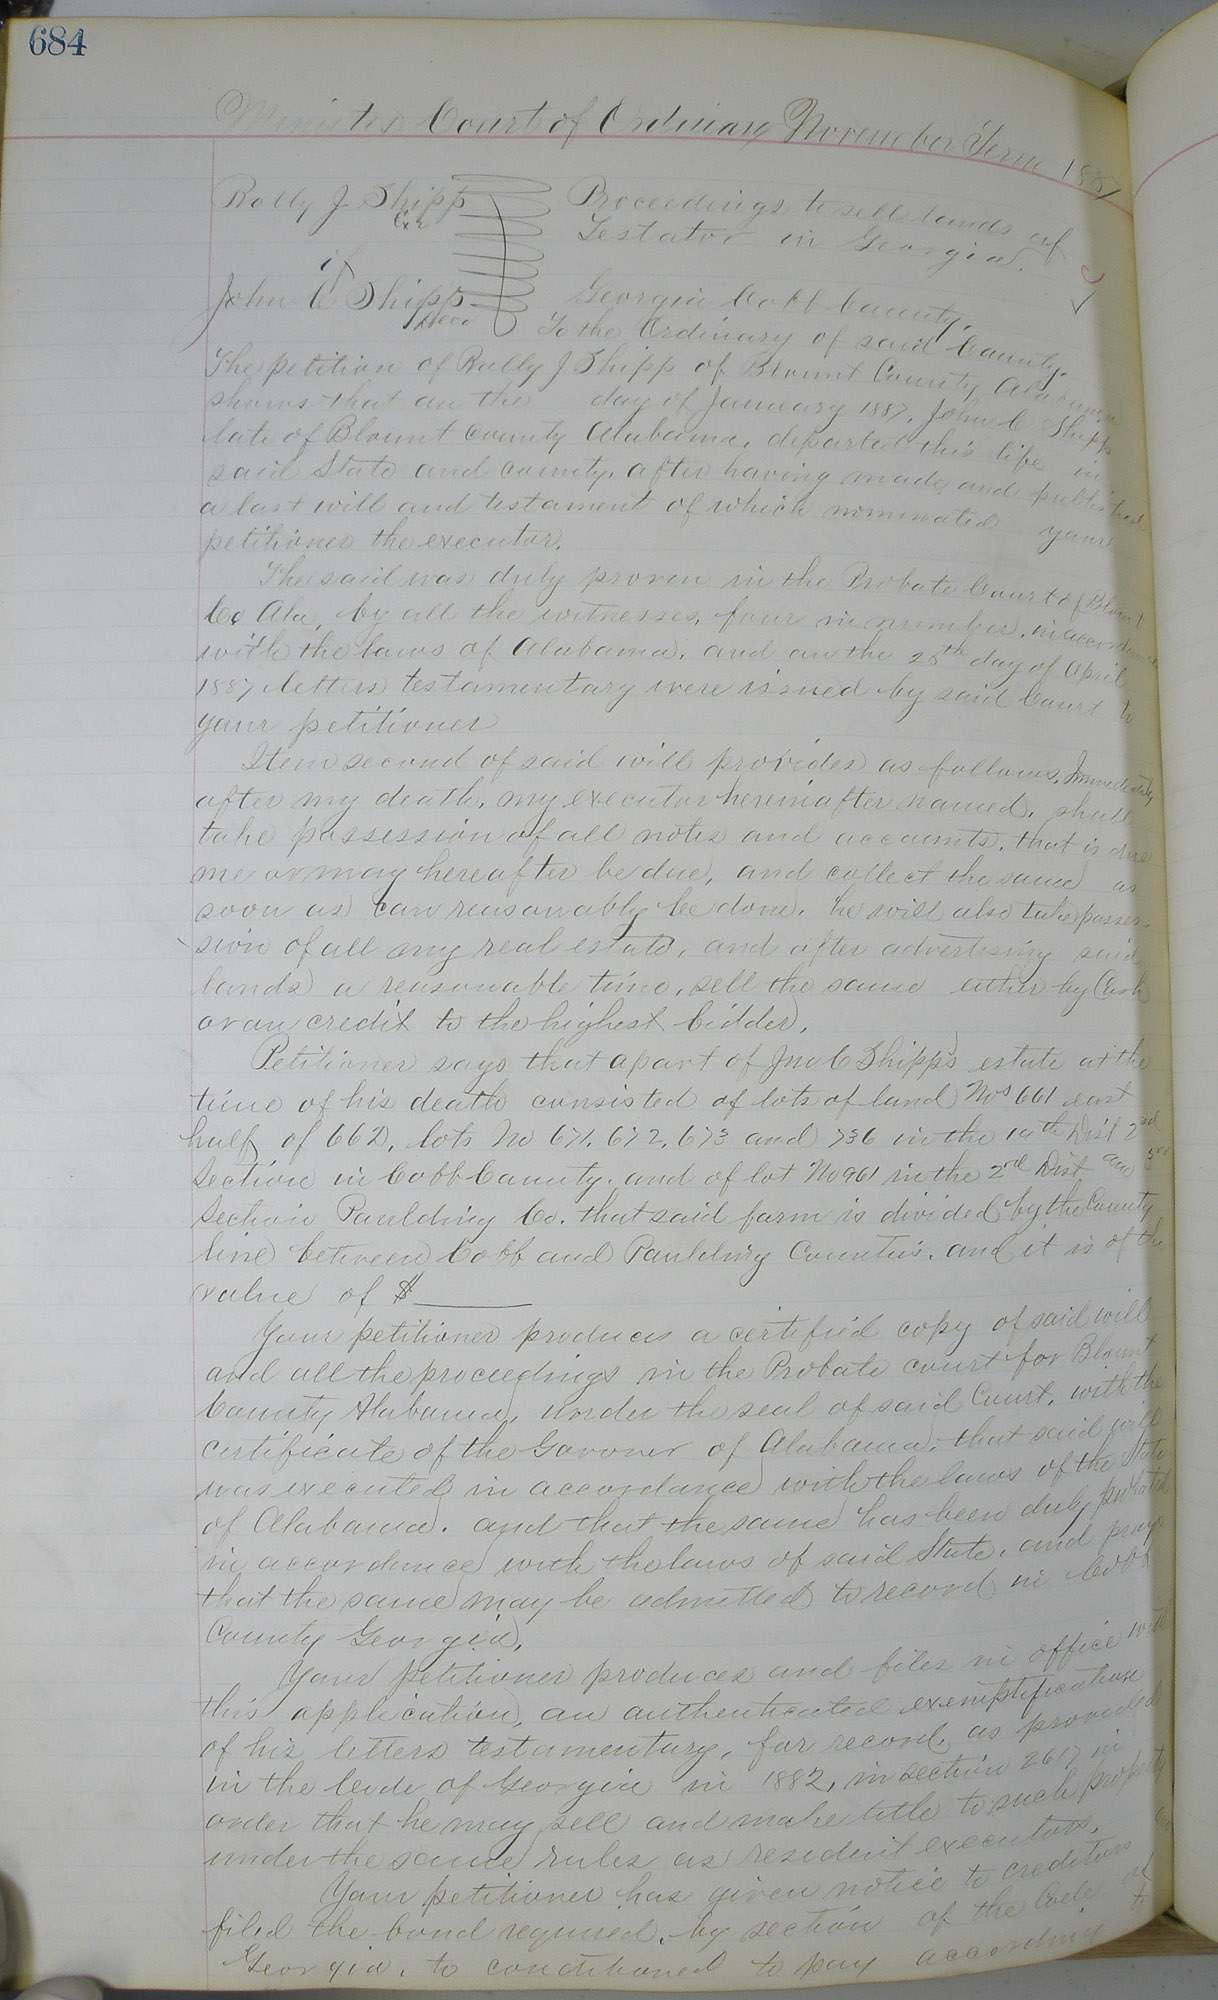 684
Minutes Court of Ordinary November Term 1887
Rolly J Shipp
Exr
of
John C Shipp
Decd
Proceedings to sell lands of
Testator in Georgia.
Georgia Cobb County.
To the Ordinary of said County.
The petition of Rolly J Shipp of Blount County Alabama
shows that on the day of January 1887, John C Shipp
late of Blount County Alabama, departed this life in
said State and county, after having made and published
a last will and testament of which nominated your
petitioner the executor.
The said was duly proven in the Probate Court of Blount
Co Ala, by all the witnesses, four in number, in accordance
with the laws of Alabama, and on the 25th day of April
1887 letters testamentary were issued by said Court to
your petitioner
Item second of said will provides as follows, Immediately
after my death, my executor hereinafter named, shall
take possession of all notes and accounts, that is due
me or may hereafter be due, and collect the same as
soon as can reasonably be done. he will also take posses-
sion of all my real estate, and after advertising said
lands a reasonable time, sell the same either by Cash
or on credit to the highest bidder.
Petitioner says that a part of Jno C Shipp's estate at the
time of his death consisted of lots of land Nos 661 east
half of 662, lots No 671, 672, 673 and 736 in the 19th Dist 2nd
Section in Cobb County. and of lot No 961 in the 2nd Dist and 3rd
Section Paulding Co. that said farm is divided by the County
line between Cobb and Paulding Counties. and it is of the
value of $______
Your petitioner produces a certified copy of said will
and all the proceedings in the Probate court for Blount
County Alabama, under the seal of said Court, with the
certificate of the Govoner of Alabama, that said will
was executed in accordance with the laws of the State
of Alabama. and that the same has been duly probated
in accordance with the laws of said State, and prays
that the same may be admitted to record in Cobb
County Georgia.
Your petitioner produces and files in office with
this application, an authenticated exemplification
of his letters testamentary, for record, as provided
in the Code of Georgia in 1882, in section 2617 in
order that he may sell and make title to such property
under the same rules as resident executors.
Your petitioner has given notice to creditors and
filed the bond required, by section of the Code of
Georgia, to conditioned to pay according to